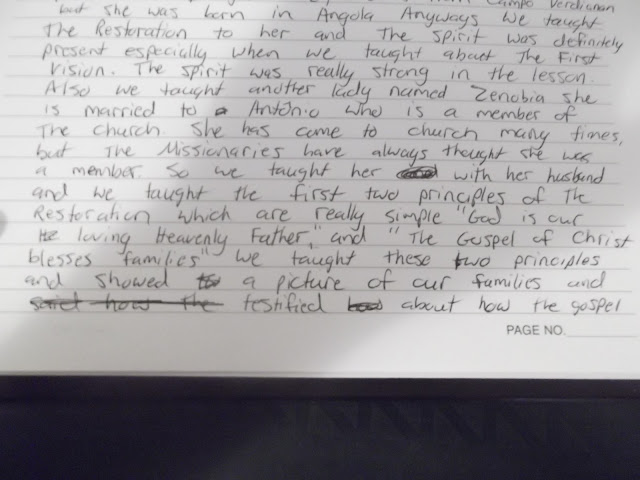 but she was born in Angola Anyways we taught
The Restoration to her and The spirit was definitely
present especially when we taught about The First
Vision. The spirit was really strong in the lesson.
Also we taught another lady named Zenobia she
is married to António who is a member of
The church. She has come to church many times,
but The Missionaries have always thought she was
a member. So we taught her with her husband
and we taught the first two principles of The
Restoration which are really simple "God is our
loving Heavenly Father," and "The Gospel of Christ
blesses families" we taught these two principles
and showed a picture of our families and
testified about how the gospel
PAGE NO.